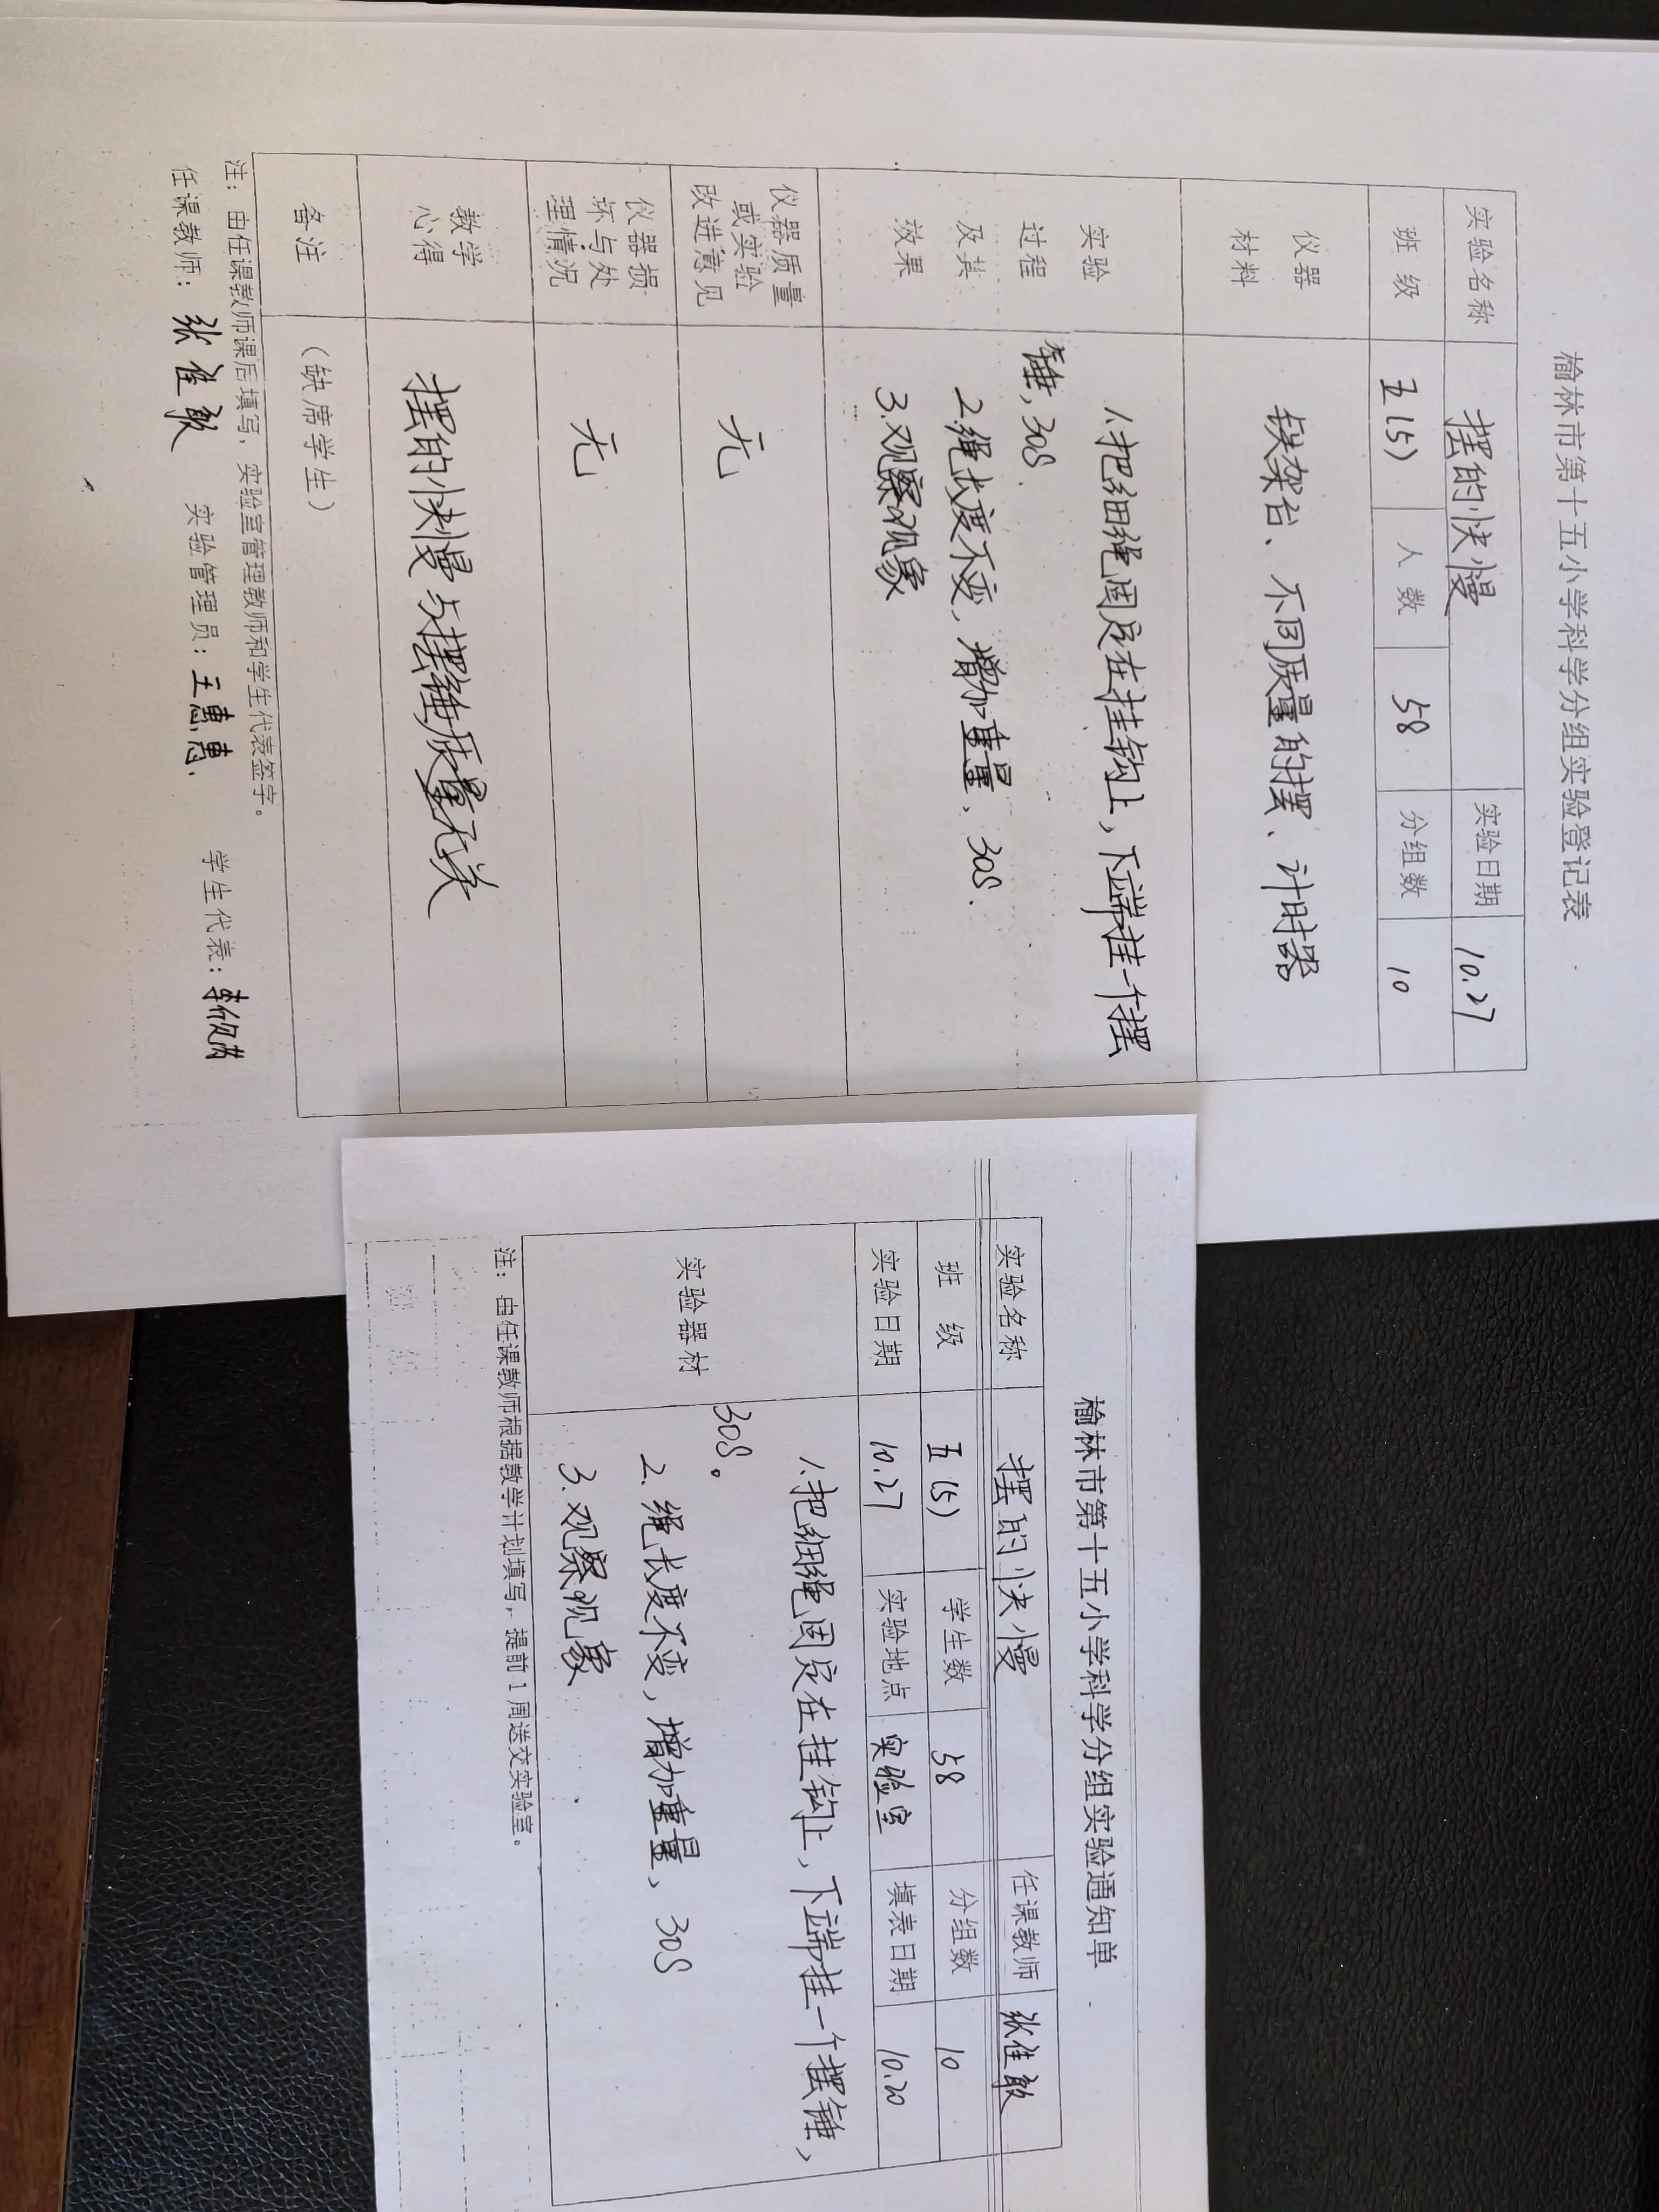 榆林市第十五小学科学分组实验登记表
实验名称 摆的快慢 实验日期 10.27
班 级 五(5) 人 数 58 分组数 10
仪器
材料
铁架台、不同质量的摆、计时器
实验
过程
及其
效果
1.把细绳固定在挂钩上,下端挂一个摆
锤,30S.
2.绳长度不变,增加重量,30S.
3.观察现象
仪器质量
或实验
改进意见
无
仪器损
坏与处
理情况
无
教学
心得
摆的快慢与摆锤质量无关
备注 (缺席学生)
注:由任课教师课后填写,实验室管理教师和学生代表签字。
任课教师: 张佳敏 实验管理员:王惠惠. 学生代表:李
榆林市第十五小学科学分组实验通知单
实验名称 摆的快慢 任课教师 张佳敏
班 级 五(5) 学生数 58 分组数 10
实验日期 10.27 实验地点 实验室 填表日期 10.20
实验器材
1.把细绳固定在挂钩上,下端挂一个摆锤,
30S。
2.绳长度不变,增加重量,30S
3.观察现象
注:由任课教师根据教学计划填写,提前1周送交实验室。